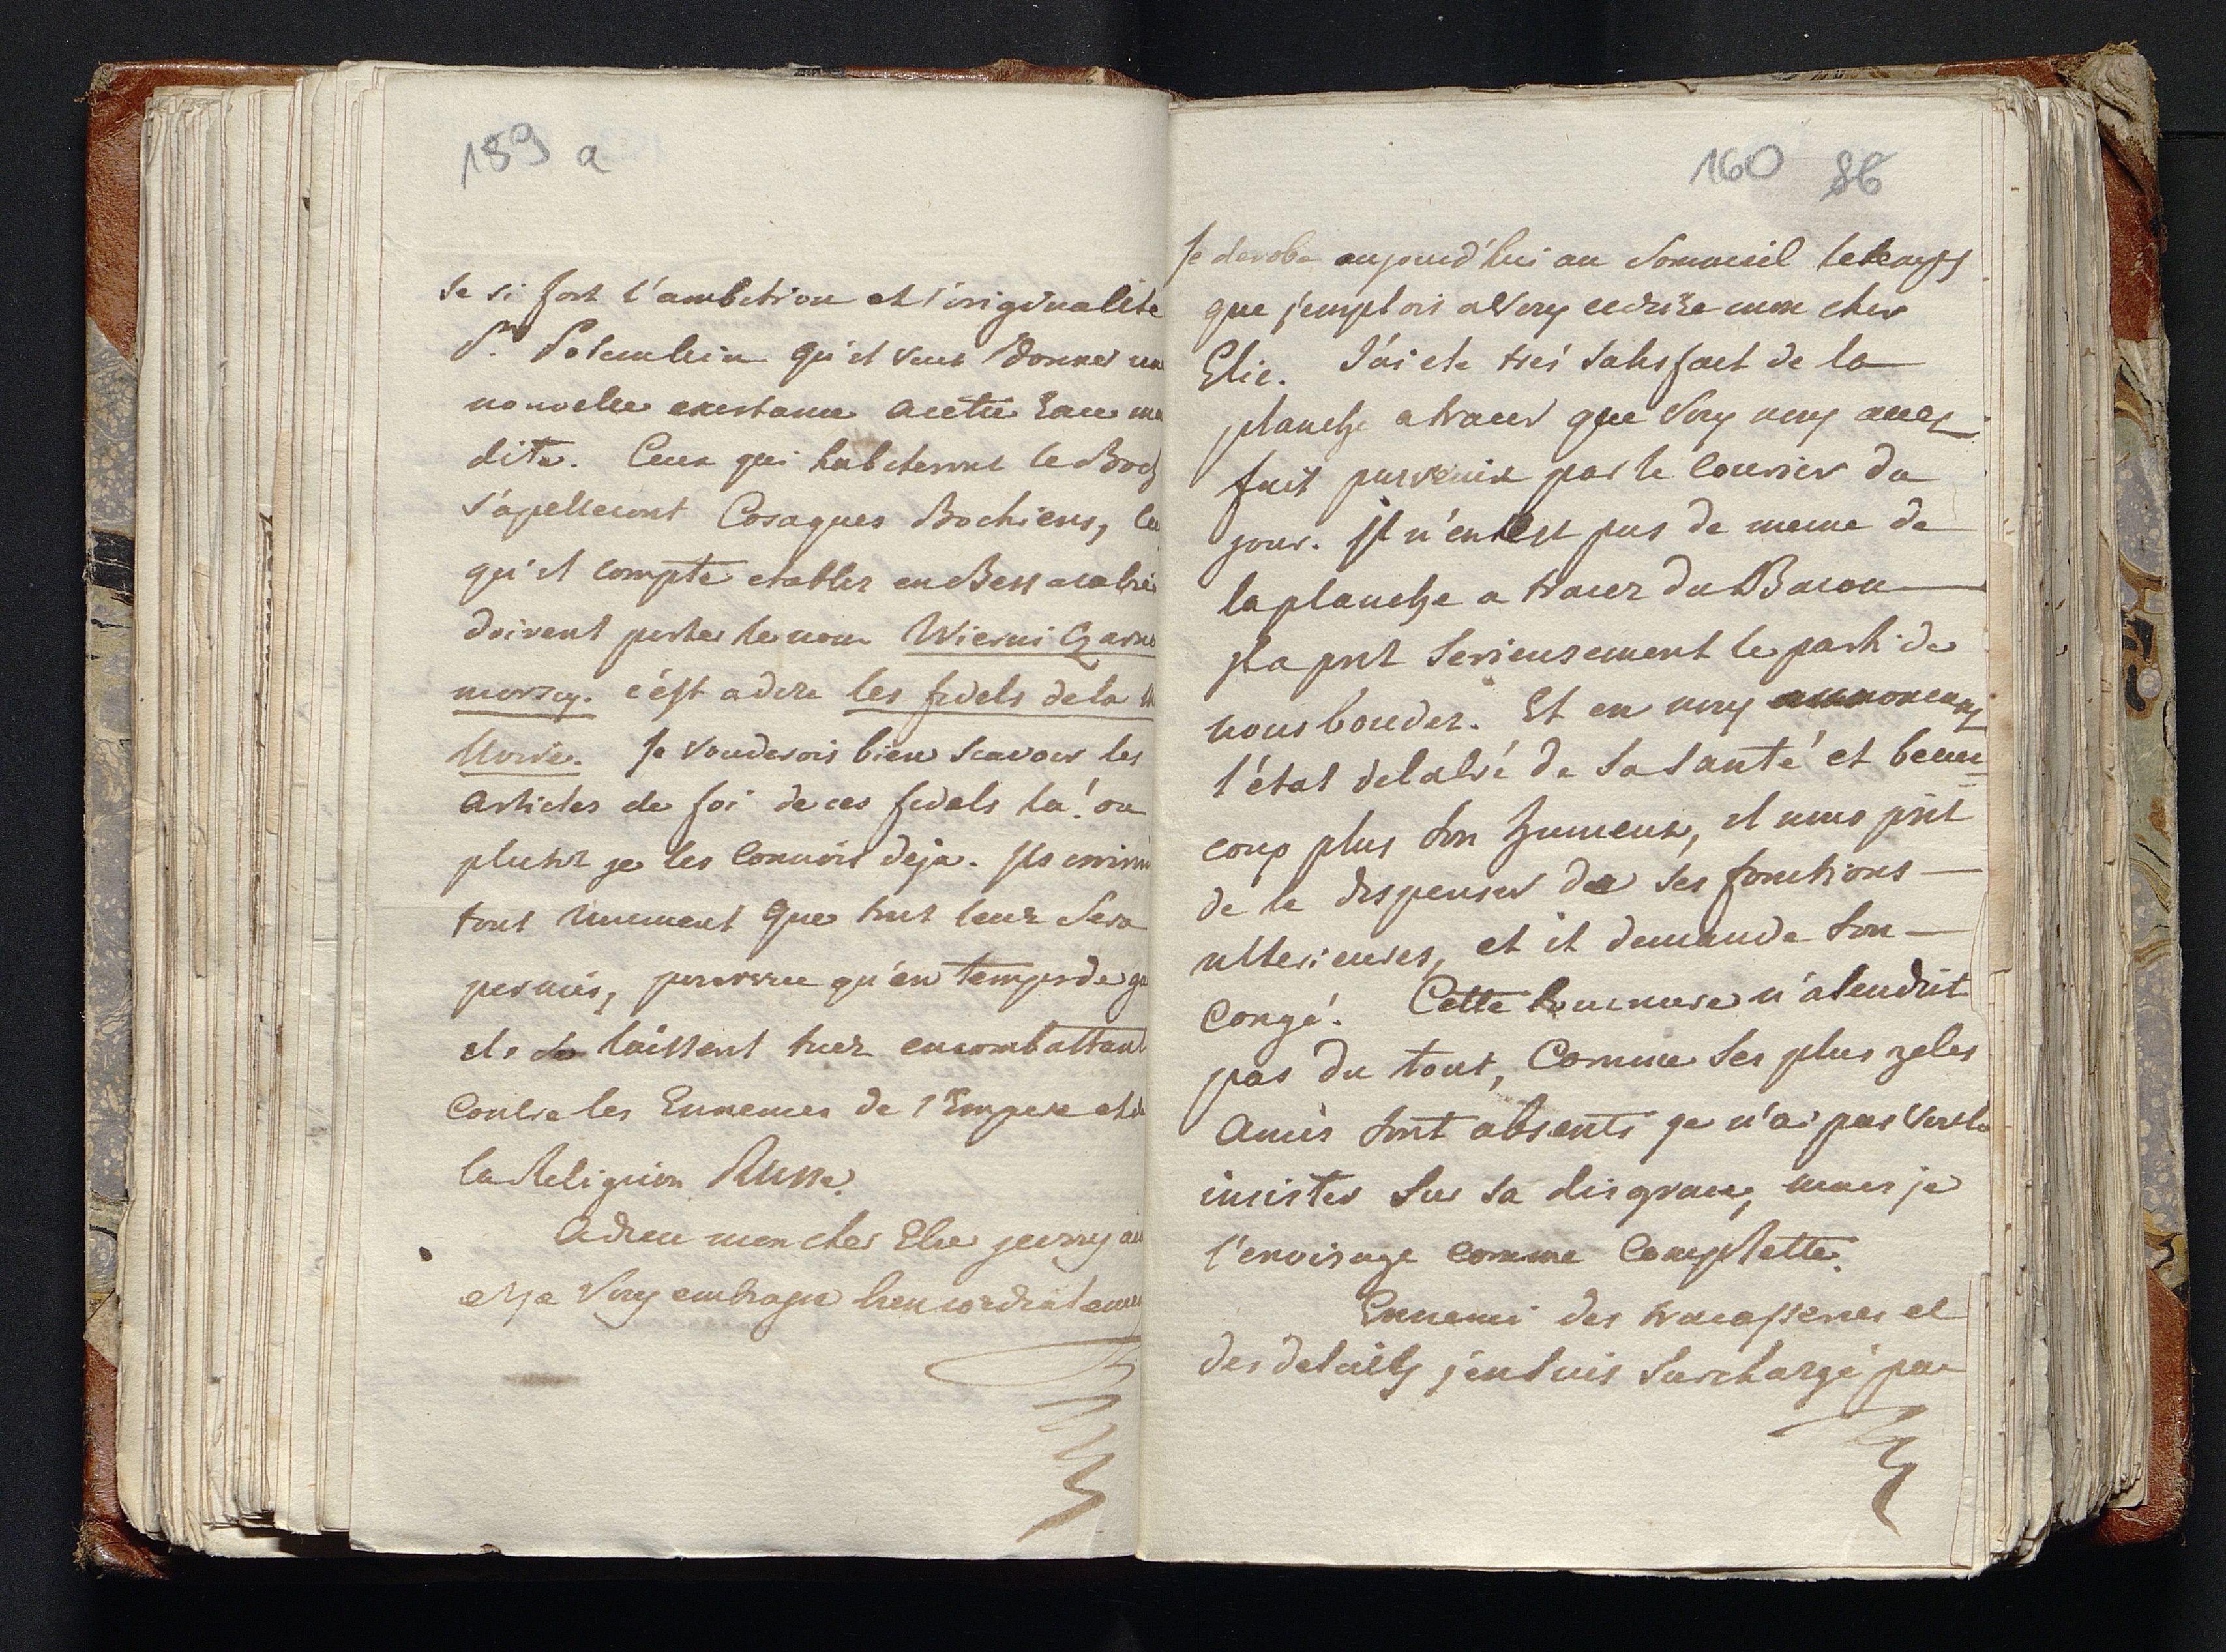 159 a
se si fort l'ambition et l'originalité
Pce Potemkin qu'il veut donner une
nouvelle existance a cette race mau
dite. Ceux qui habiterons le Bog
s'apelleront Cosaques Bochiens, les
qu'il compte etablir en Bessarabie
doivent porter le nom Wierni Czarno
morscy. c'est a dire les fidels de la M
Noire. Je vouderois bien scavoir les
articles de foi de ces fidels la! ou
plutot je les connois deja. Ils
tout uniment que tout leur sera
permis, pourvue qu'en temps de gu
ils se laissent tuer en combattant
contre les Ennemies de l'Empire et de
la Religion Russe.
Adieu mon cher Elie je vous aim
et je vous embrasse bien cordialemen
160 86
Je derobe aujourd'hui au sommeil le temps
que j'emplois a vous ecrire mon cher
Elie. J'ai eté tres satisfait de la
planche a tracer que vous nous avez
fait parvenir par le courier du
jour. Il n'en est pas de meme de
la planche a tracer du Baron
Il a prit serieusement le parti de
nous bouder. Et en nous annoncant
l'état delabré de sa santé et beau=
coup plus son humeur, il nous prit
de le dispenser de ses fonctions
ulterieures, et il demande son
congé. Cette tournure n'atendrit
pas du tout, comme ses plus zeles
amis sont absents je n'ai pas voulu
insister sur sa disgrace, mais je
l'envisage comme complette.
Ennemi des tracasseries et
des details j'en suis surchargé par